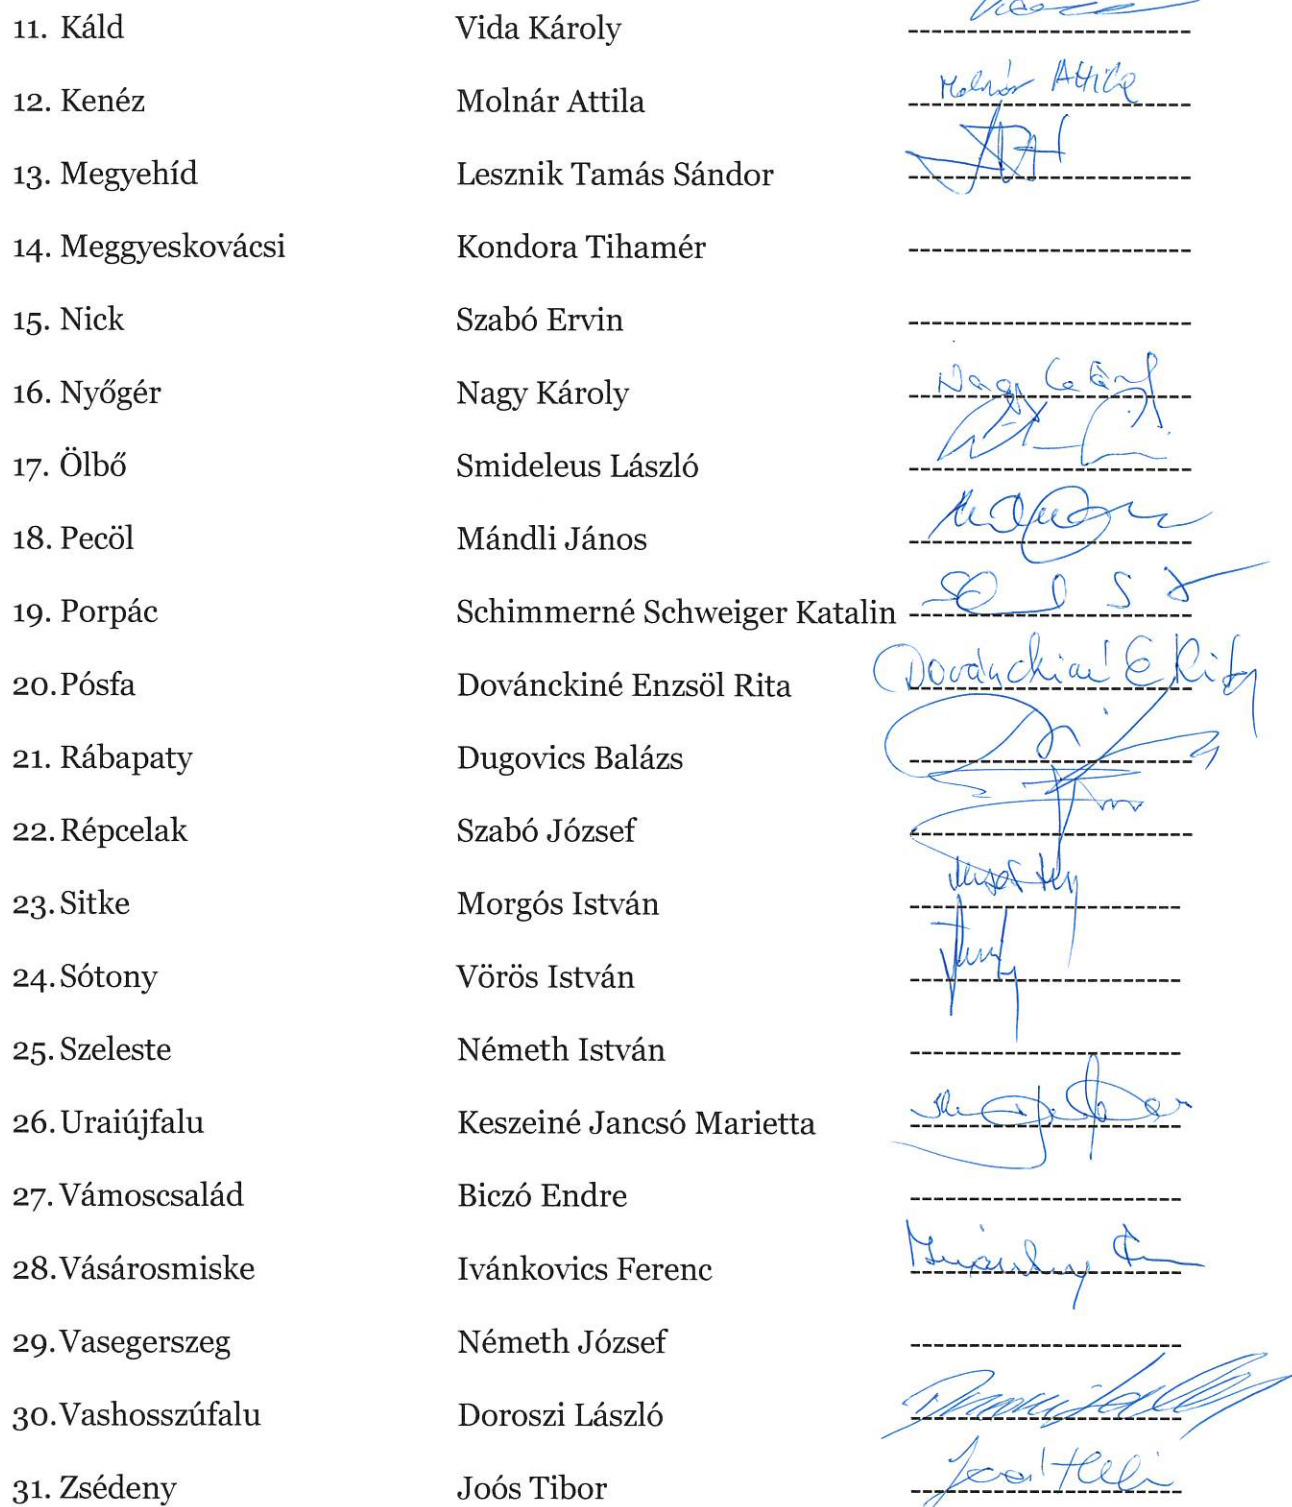 11. Káld Vida Károly
12. Kenéz Molnár Attila Molnár Attila
13. Megyehíd Lesznik Tamás Sándor
14. Meggyeskovácsi Kondora Tihamér
15. Nick Szabó Ervin
16. Nyőgér Nagy Károly Nagy
17. Ölbő Smideleus László
18. Pecöl Mándli János
19. Porpác Schimmerné Schweiger Katalin
20. Pósfa Dovánckiné Enzsöl Rita Dovánckiné E. Rita
21. Rábapaty Dugovics Balázs
22. Répcelak Szabó József
23. Sitke Morgós István
24. Sótony Vörös István
25. Szeleste Németh István
26. Uraiújfalu Keszeiné Jancsó Marietta
27. Vámoscsalád Biczó Endre
28. Vásárosmiske Ivánkovics Ferenc
29. Vasegerszeg Németh József
30. Vashosszúfalu Doroszi László
31. Zsédeny Joós Tibor